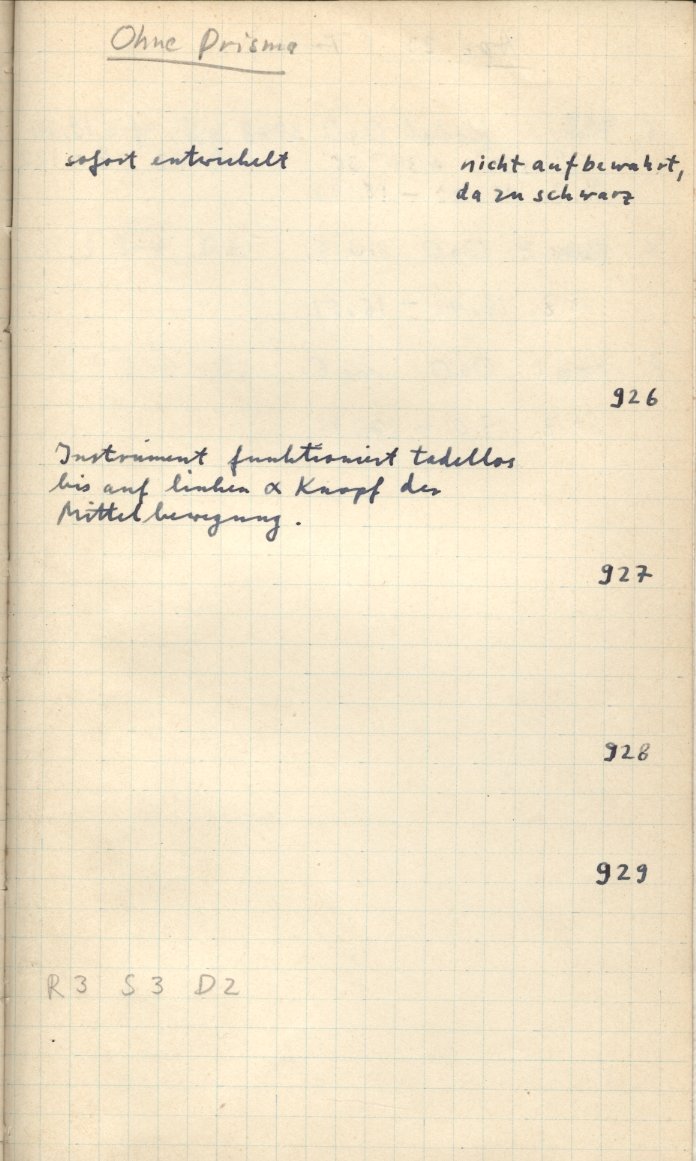 Ohne Prisma
sofort entwickelt
nicht aufbewahrt,
da zu schwarz
926
Instrument funktioniert tadellos
bis auf linken α Knopf der
Mittelbewegung.
927
928
929
R3 S3 D2